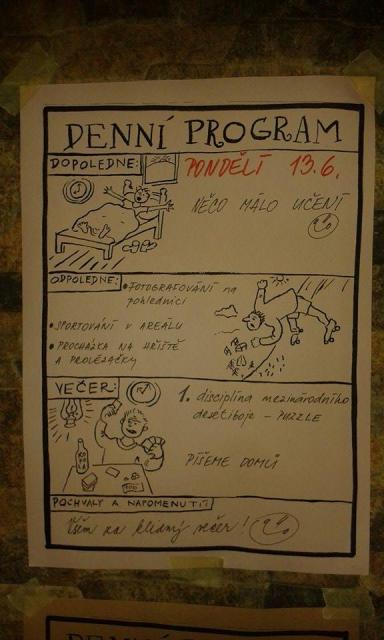 DENNÍ PROGRAM
DOPOLEDNE:
PONDĚLÍ 13.6.
NĚCO MÁLO UČENÍ
ODPOLEDNE:
• FOTOGRAFOVÁNÍ na
pohlednici
• SPORTOVÁNÍ V AREÁLU
• PROCHÁZKA NA HŘIŠTĚ
A PROLÉZAČKY
VEČER:
1. disciplína mezinárodního
desetiboje - PUZZLE
PÍŠEME DOMŮ
POCHVALY A NAPOMENUTÍ:
Všem za klidný večer!